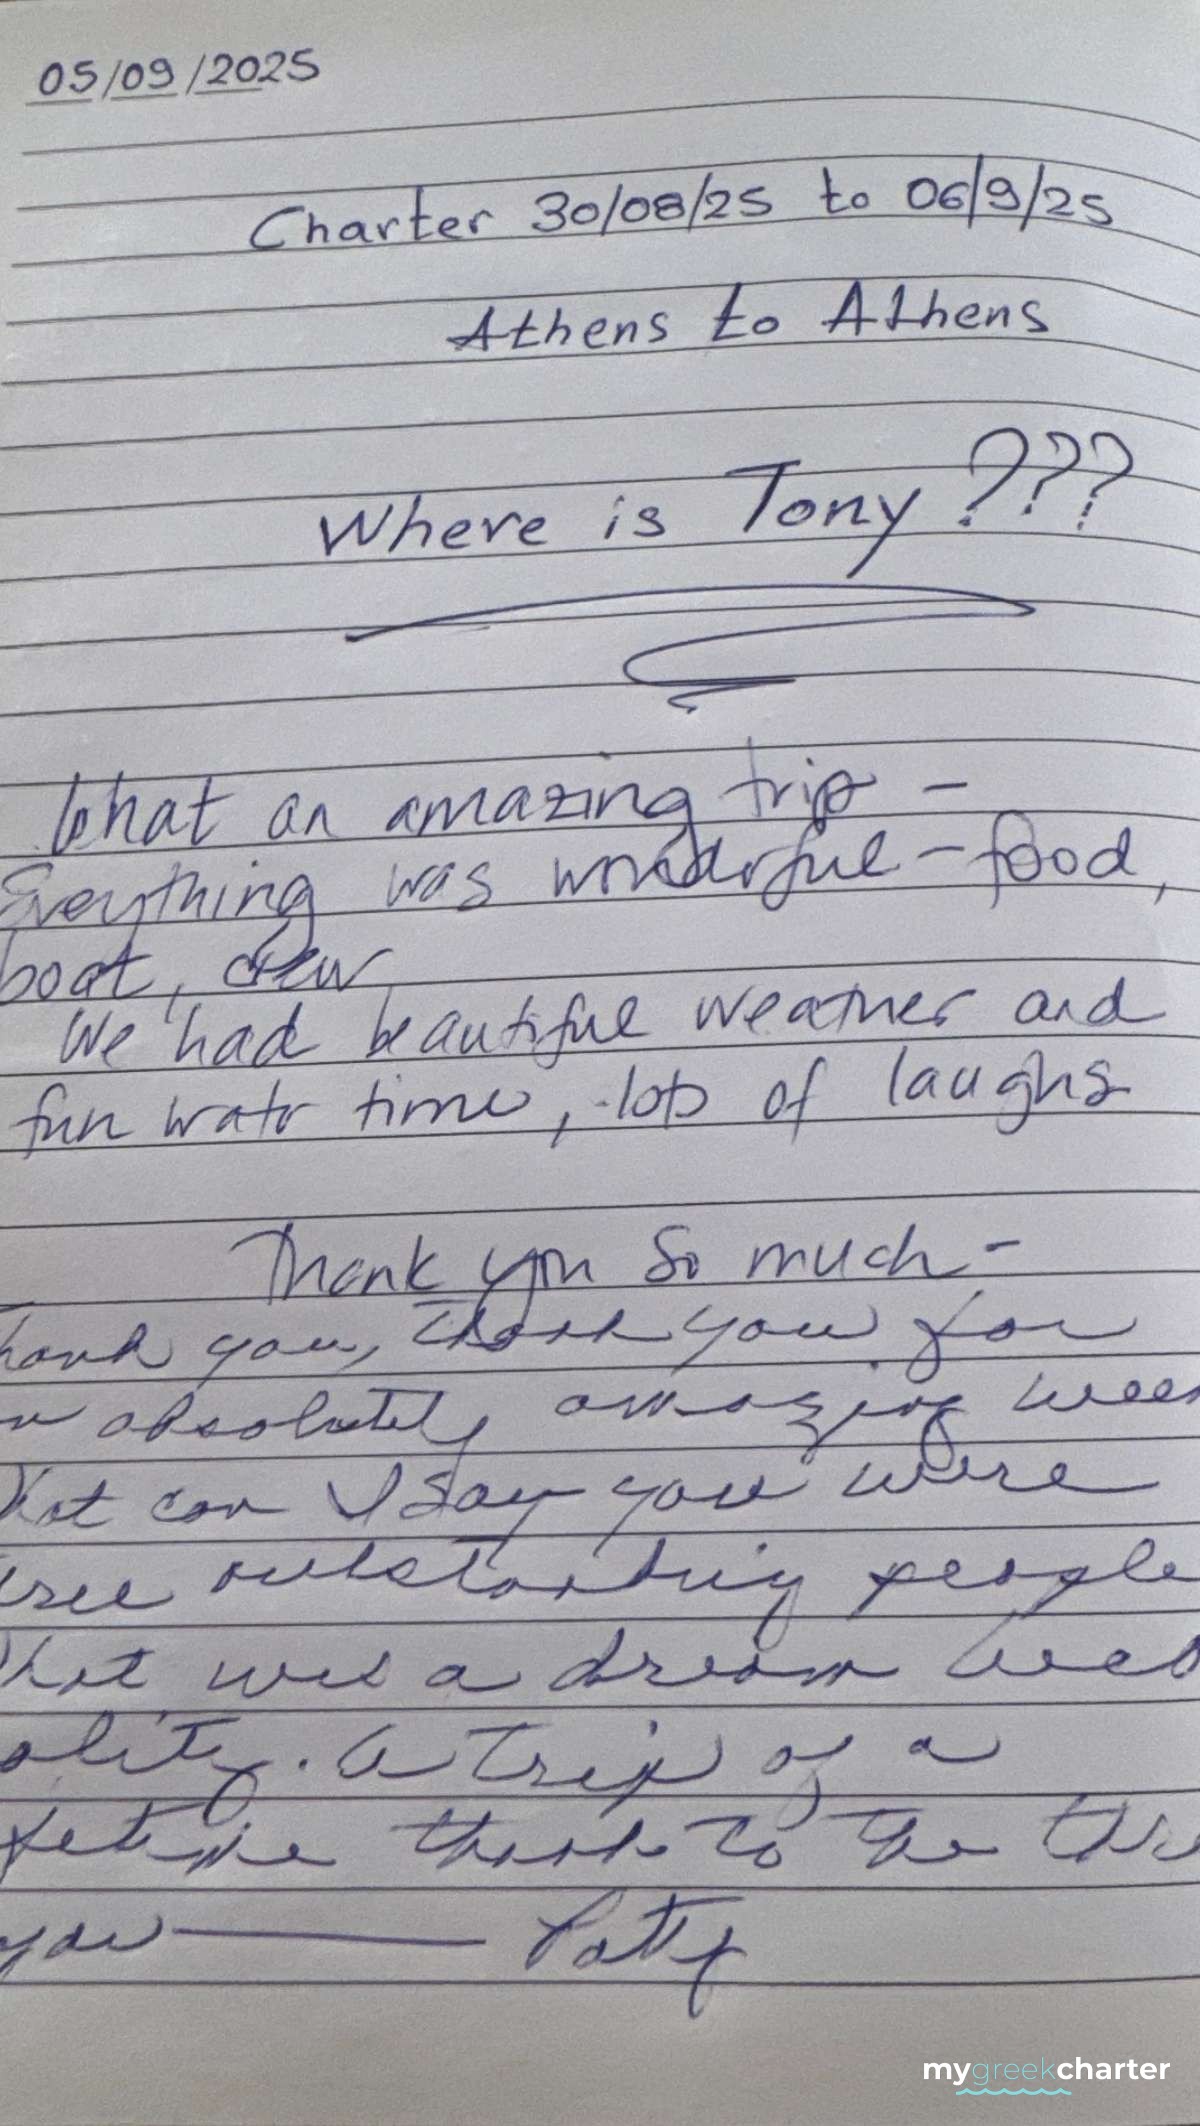 05/09/2025
Charter 30/08/25 to 06/9/25
Athens to Athens
Where is Tony ???
What an amazing trip -
Everything was wonderful - food,
boat, crew
We had beautiful weather and
fun water time, lots of laughs
Thank you so much -
hank you, thank you for
n absolutely amazing wee
hat can I say you were
ree outstanding people
hat was a dream beca
ality. A trip of a
fetime thank to the thr
you — Patty
mygreekcharter